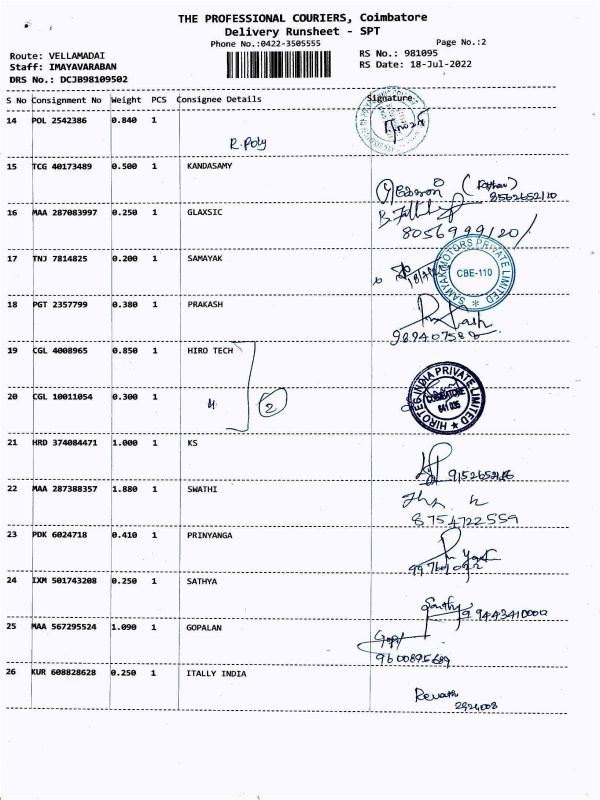 THE PROFESSIONAL COURIERS, Coimbatore
Delivery Runsheet - SPT
Phone No.:0422-3505555
Page No.:2
Route: VELLAMADAI
RS No.: 981095
Staff: IMAYAVARABAN
RS Date: 18-Jul-2022
DRS No.: DCJB98109502
S No Consignment No Weight PCS Consignee Details Signature
14 POL 2542386 0.840 1
R.Poly
15 TCG 40173489 0.500 1 KANDASAMY
8562652110
16 MAA 287083997 0.250 1 GLAXSIC
8056999120
17 TNJ 7814825 0.200 1 SAMAYAK
SAMYAK MOTORS PRIVATE LIMITED
CBE-110
18 PGT 2357799 0.380 1 PRAKASH
19 CGL 4008965 0.850 1 HIRO TECH
20 CGL 10011054 0.300 1 4 2
HIROTEG INDIA PRIVATE LIMITED
COIMBATORE
641 035
21 HRD 374084471 1.000 1 KS
22 MAA 287388357 1.880 1 SWATHI
8754722559
23 PDK 6024718 0.410 1 PRINYANGA
24 IXM 501743208 0.250 1 SATHYA
9443410000
25 MAA 567295524 1.090 1 GOPALAN
Gopi
9600895689
26 KUR 608828628 0.250 1 ITALLY INDIA
Revath